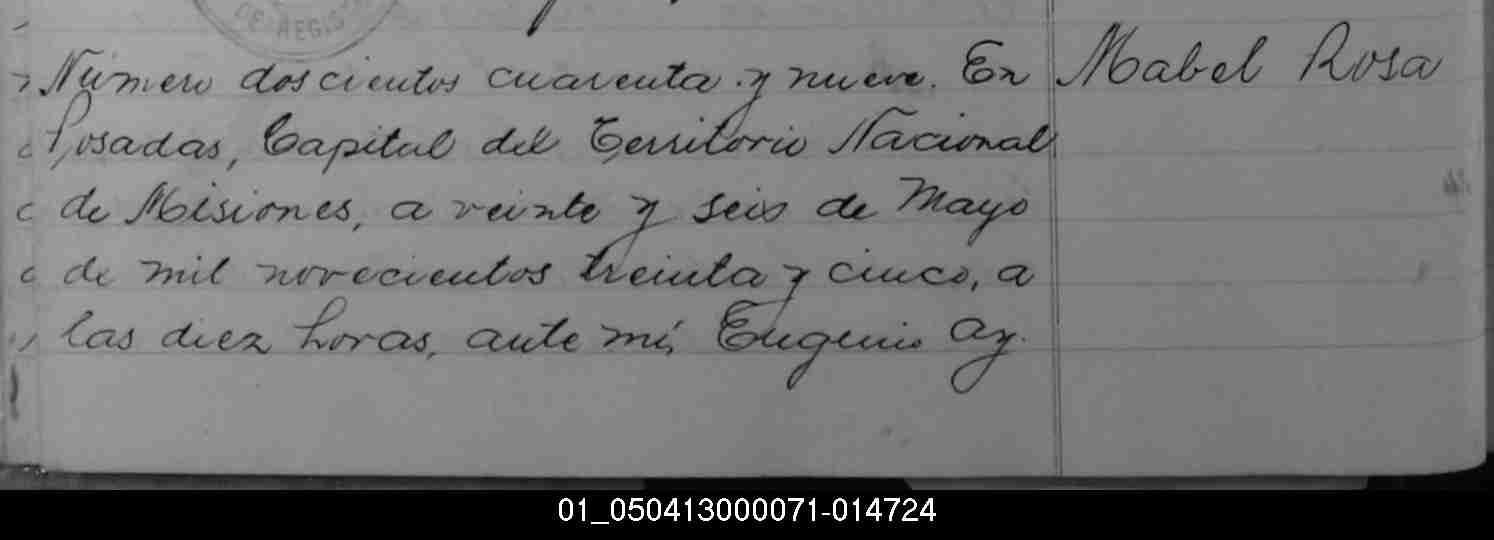 DE REGIS
Número doscientos cuarenta y nueve. En
Posadas, Capital del Territorio Nacional
de Misiones, a veinte y seis de Mayo
de mil novecientos treinta y cinco, a
las diez horas, ante mí, Eugenio Ay.
Mabel Rosa
01_050413000071-014724